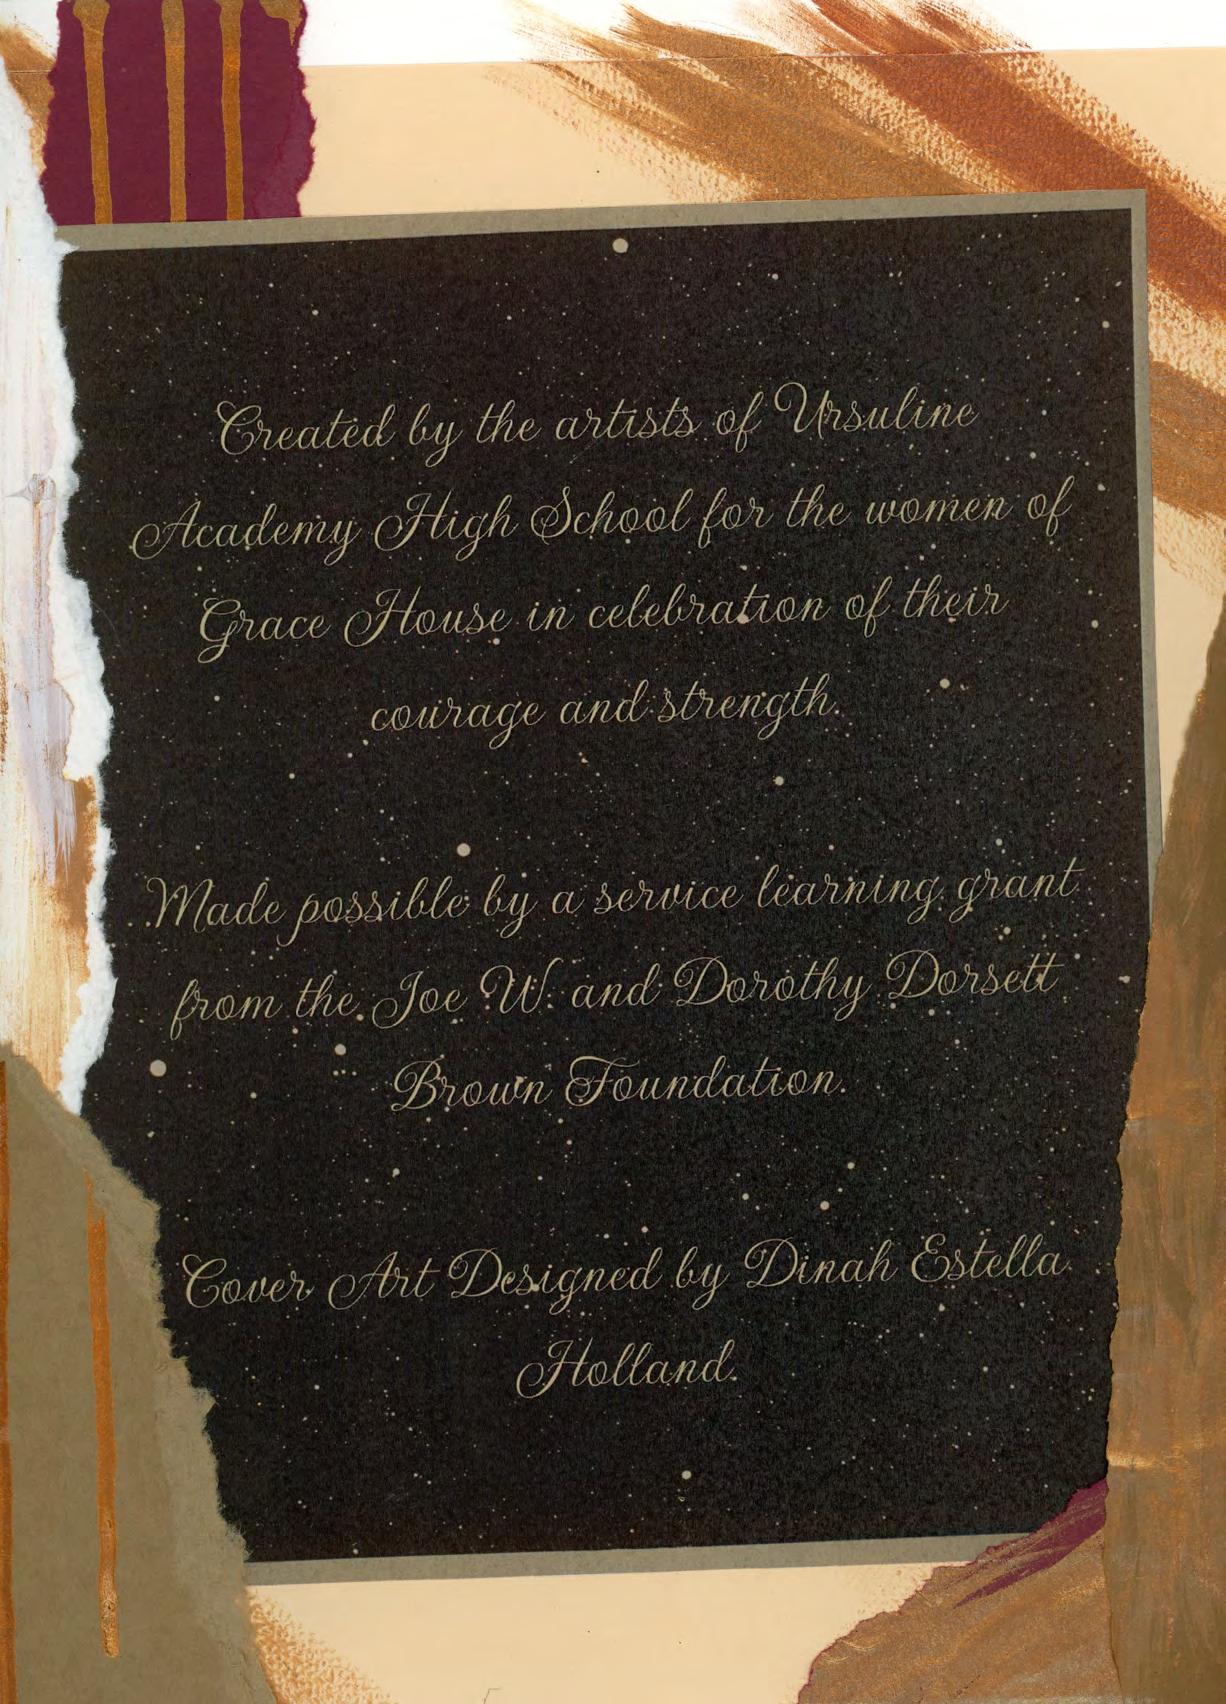 Created by the artists of Ursuline
Academy High School for the women of
Grace House in celebration of their
courage and strength.
Made possible by a service learning grant
from the Joe W. and Dorothy Dorsett
Brown Foundation.
Cover Art Designed by Dinah Estella
Holland.